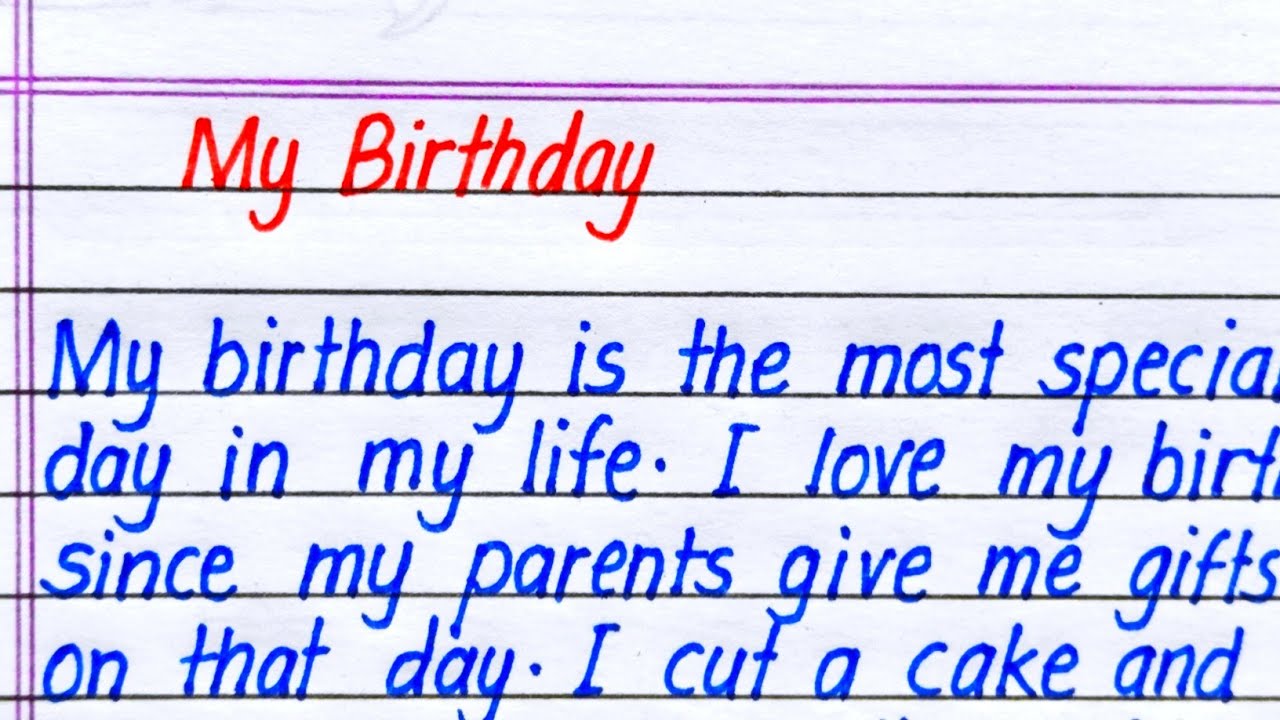 My Birthday
My birthday is the most special
day in my life. I love my birth
since my parents give me gifts
on that day. I cut a cake and